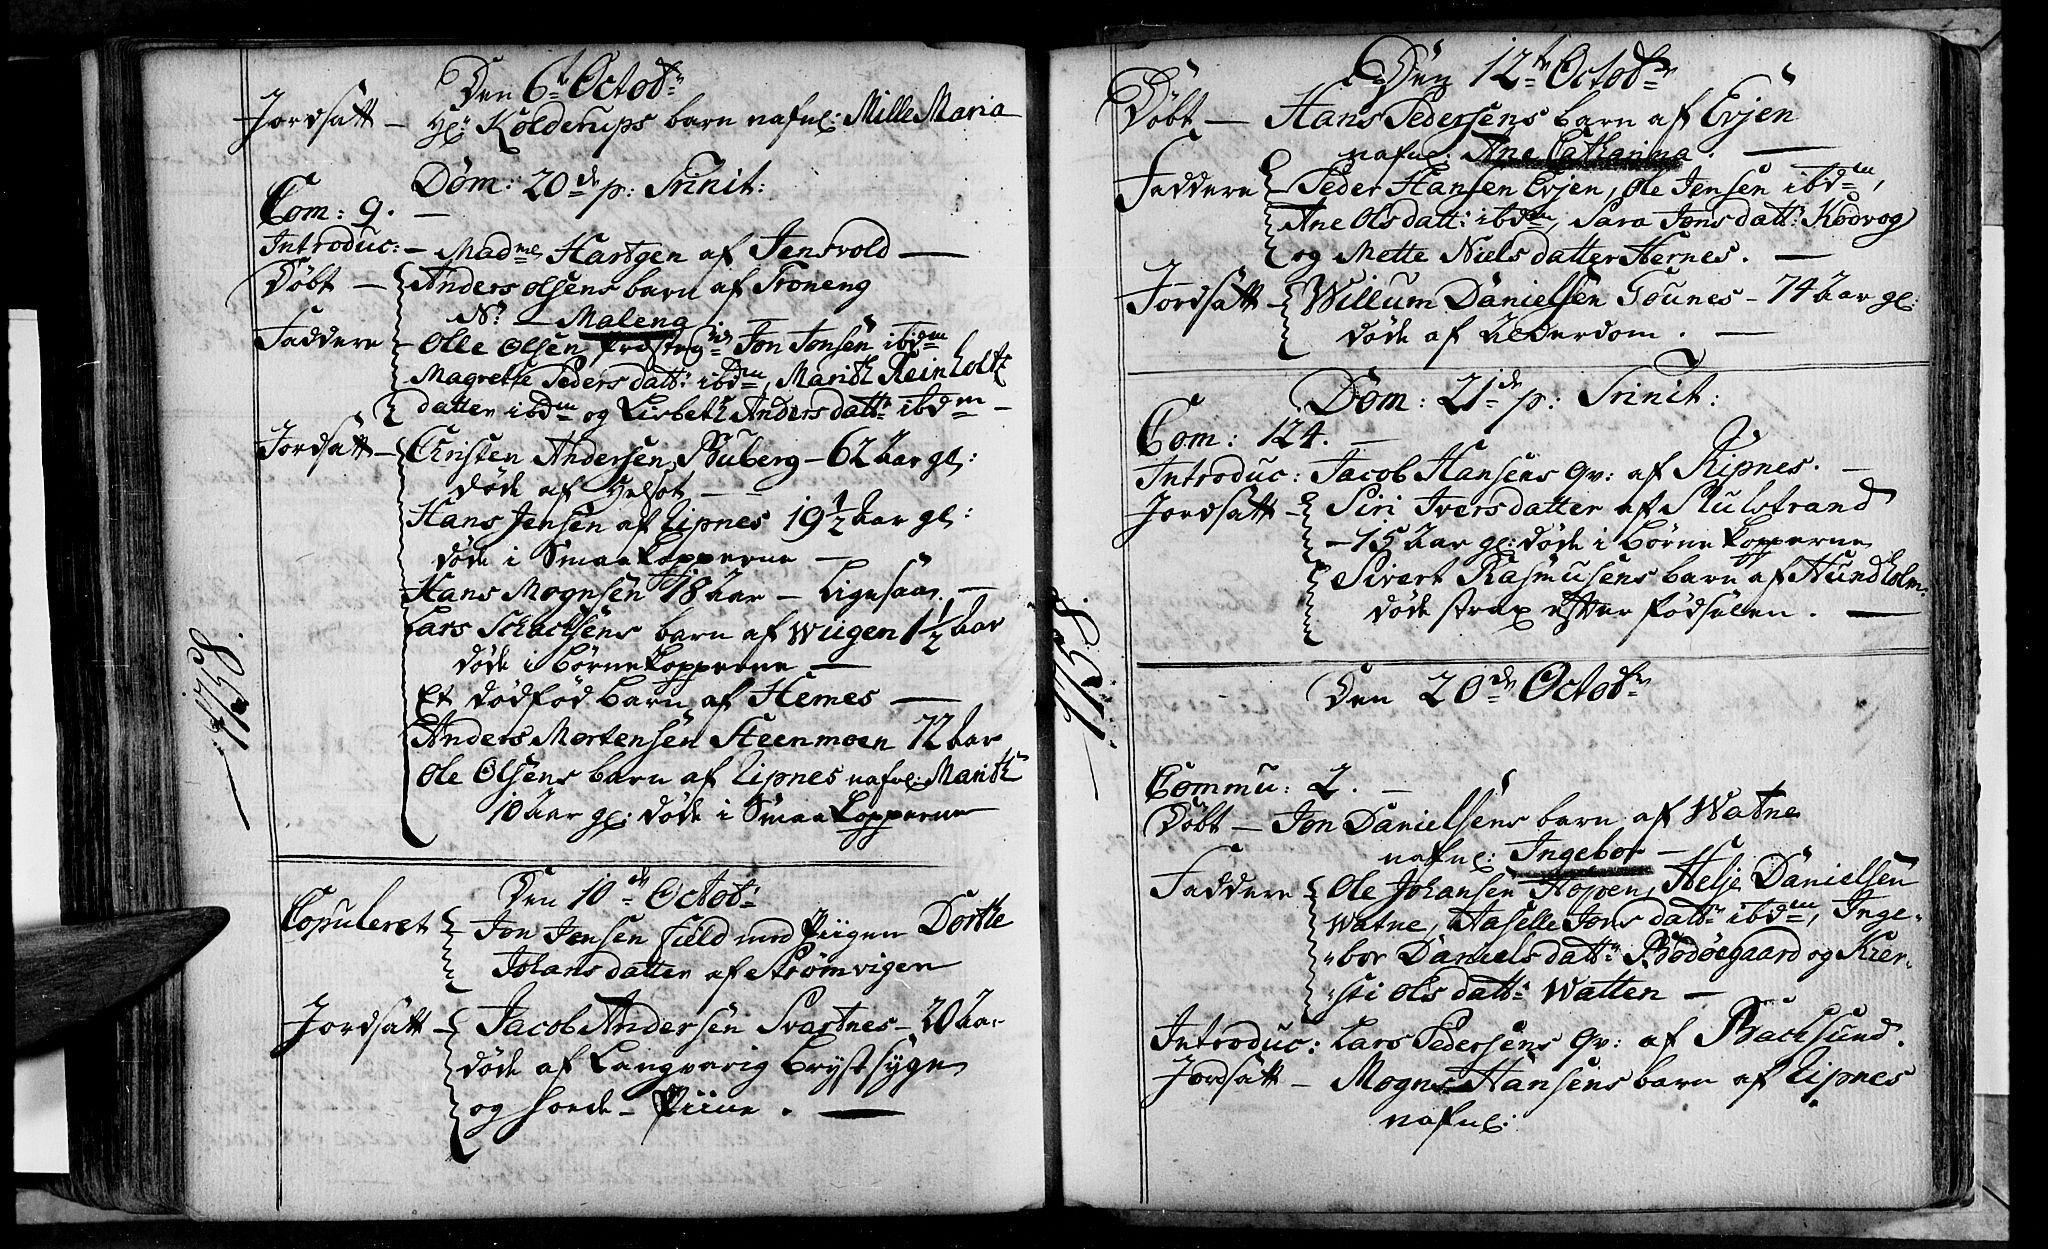 Den 6te Octobr:
Jordsatt – Hr: Kolderups barn nafnl: Mille Maria
Dom: 20de p: Trinit:
Com: 9. –
Introduc: – Madme Hartgen af Jensvold –
Döbt – Anders Olsens barn af Troneng
No – Maleng
Faddere – Olle Olsen Prdsteg Jon Jonsen ibdm
Magrethe Pedersdatt: ibdm, Marith Reinholtz
datter ibdm og Lisbeth Andersdattr ibdm –
Jordsatt – Christen Andersen Buberg – 62 Aar gl:
döde af
Hans Jensen af Lipnes 19 1/2 Aar gl:
döde i Smaakopperne –
Hans Mognsen 18 Aar – Ligesaa. –
Lars Schachsens barn af Wiigen 1 1/2 Aar
döde i Börnekopperne –
Et dödföd Barn af Hernes –
Anders Mortensen Steenmoen 72 Aar
Ole Olsens barn af Lipnes nafnl: Marith
10 Aar gl: döde i Smaakopperne
1758.
Den 10de Octobr:
Copuleret – Jon Jensen Field med Piigen Dorthe
Johansdatter af Strömvigen
Jordsatt – Jacob Andersen Svartnes – 20 Aar
döde af Langvarig Brystsyge
og – Piine. –
Den 12te Octobr
Döbt – Hans Pedersens barn af Evjen
nafnl: Ane Catharina. –
Faddere – Peder Hansen Evjen, Ole Jensen ibdm,
Ane Olsdatt: ibdm, Sara Jonsdattr: Kodvog
og Mette Nielsdatter Hernes. –
Jordsatt – Willum Danielsen Gounes – 74 Aar gl:
döde af Alderdom. –
Dom: 21de p: Trinit:
Com: 124. –
Introduc: Jacob Hansens qv: af Ripnes. –
Jordsatt – Siri Iversdatter af Skulstrand
– 15 Aar gl: döde i Börnekopperne
Sivert Rasmusens barn af Hundholm
döde strax efter födselen. –
1758.
Den 20de Octobr
Commu: 2. –
Döbt – Jon Danielsens barn af Watne
nafnl: Ingebor –
Faddere – Ole Johansen Hopen, Helje Danielsen
Watne, Aaselle Jonsdattr ibdm, Inge-
bor Danielsdattr: Bodöegaard og Kier-
sti Olsdattr: Watten –
Introduc: Lars Pedersens qv: af Bachsund.
Jordsatt – Mogns Hansens barn af Lipnes
nafnl: